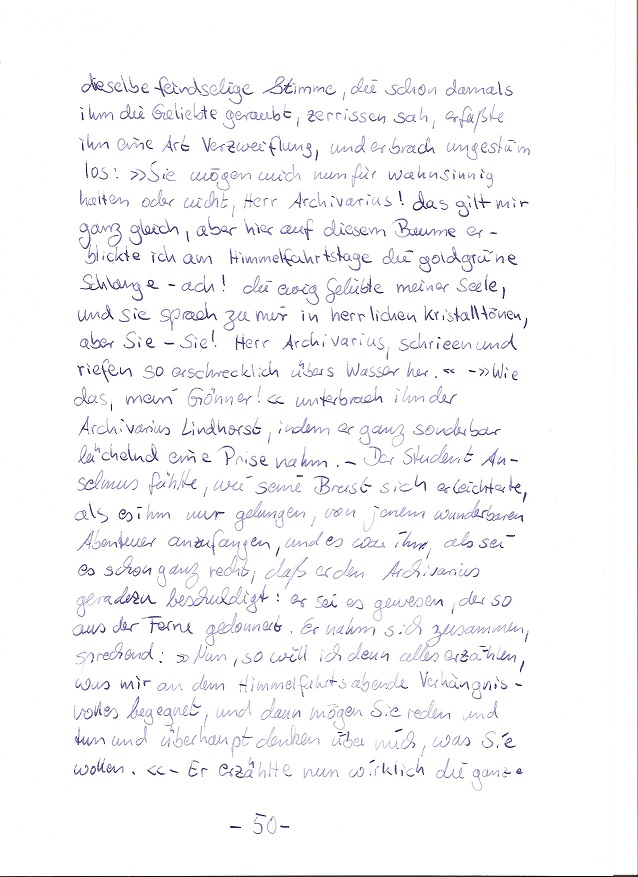 dieselbe feindselige Stimme, die schon damals
ihm die Geliebte geraubt, zerrissen sah, erfaßte
ihn eine Art Verzweiflung, und er brach ungestüm
los: »Sie mögen mich nun für wahnsinnig
halten oder nicht, Herr Archivarius! das gilt mir
ganz gleich, aber hier auf diesem Baume er-
blickte ich am Himmelfahrtstage die goldgrüne
Schlange – ach! die ewig Geliebte meiner Seele,
und sie sprach zu mir in herrlichen Kristalltönen,
aber Sie – Sie! Herr Archivarius, schrieen und
riefen so erschrecklich übers Wasser her.« –»Wie
das, mein Gönner!« unterbrach ihn der
Archivarius Lindhorst, indem er ganz sonderbar
lächelnd eine Prise nahm. – Der Student An-
selmus fühlte, wie seine Brust sich erleichterte,
als es ihm nur gelungen, von jenem wunderbaren
Abenteuer anzufangen, und es war ihm, als sei
es schon ganz recht, daß er den Archivarius
geradezu beschuldigt: er sei es gewesen, der so
aus der Ferne gedonnert. Er nahm sich zusammen,
sprechend: »Nun, so will ich denn alles erzählen,
was mir an dem Himmelfahrtsabende Verhängnis-
volles begegnet, und dann mögen Sie reden und
tun und überhaupt denken über mich, was Sie
wollen.« – Er erzählte nun wirklich die ganze
- 50 -